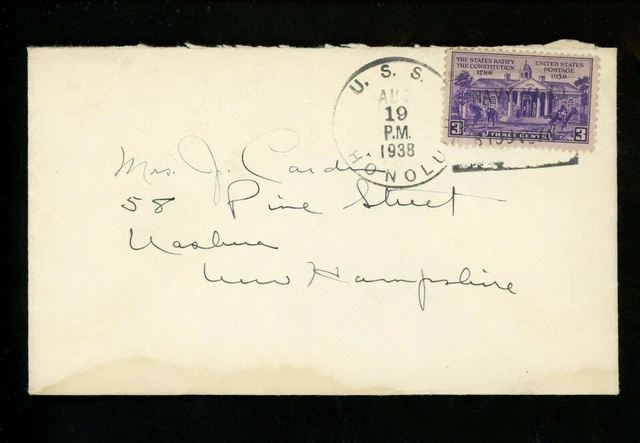 U. S. S.
HONOLU
AUG
19
P.M.
1938
THE STATES RATIFY
THE CONSTITUTION
1788
UNITED STATES
POSTAGE
1938
3 THREE CENTS 3
NAVY
Mrs. J. Cardin
58 Pine Street
Nashua
New Hampshire